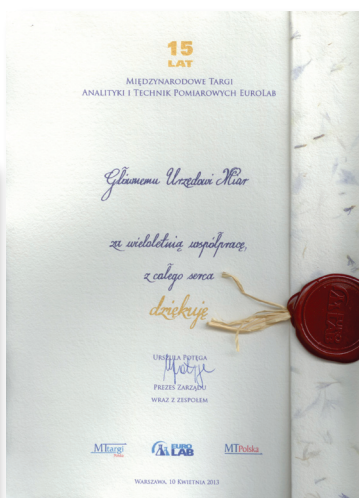 15
LAT
MIĘDZYNARODOWE TARGI
ANALITYKI I TECHNIK POMIAROWYCH EUROLAB
Głównemu Urzędowi Miar
za wieloletnią współpracę,
z całego serca
dziękuję
URSZULA POTĘGA
PREZES ZARZĄDU
WRAZ Z ZESPOŁEM
MTtargi
EURO
LAB
MTPolska
WARSZAWA, 10 KWIETNIA 2013